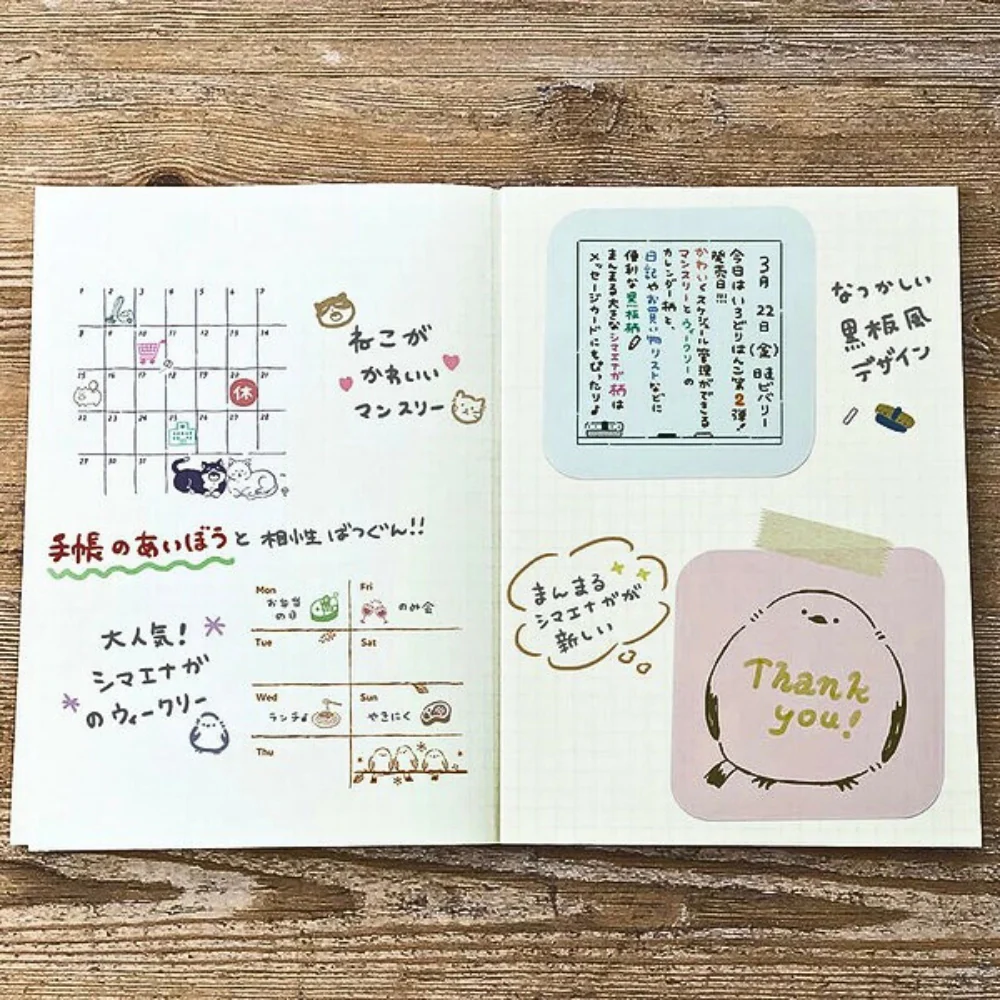 1 2 3 4 5 6 7
8 9 10 11 12 13 14
15 16 17 18 19 20 21
休
22 23 24 25 26 27 28
29 30 31
ねこが
かわいい
マンスリー
手帳のあいぼうと 相性 ばつぐん!!
大人気!
シマエナガ
のウィークリー
Mon
お弁当
の日
Fri
のみ会
Tue
Sat
Wed
ランチ♪
Sun
やきにく
Thu
3月22日(金) 日直 ビバリー
今日はいろどりはんこ第2弾!
発売日!!!
かわいくスケジュール管理ができる
マンスリーとウィークリーの
カレンダー柄と、
日記やお買い物リストなどに
便利な黒板柄
まんまる大きなシマエナガ柄は
メッセージカードにもぴったり♪
なつかしい
黒板風
デザイン
まんまる
シマエナガが
新しい
Thank
you!